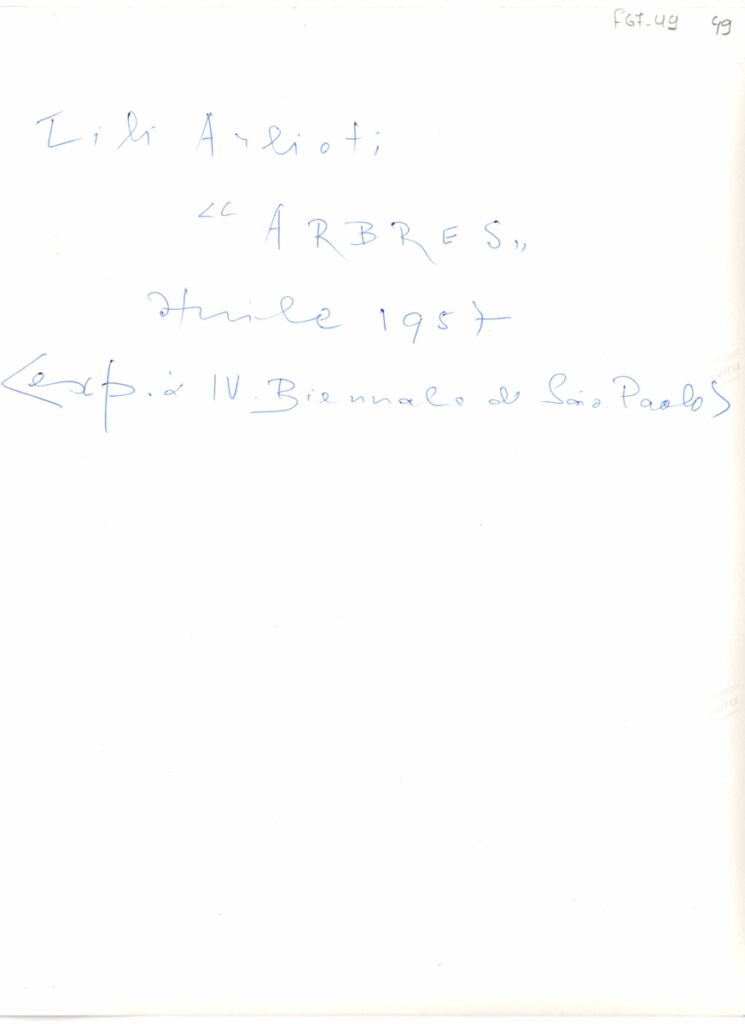 F67-49 49
Lili Arlioti
“ARBRES„
Huile 1957
<exp. à IV. Biennale de São Paolo>